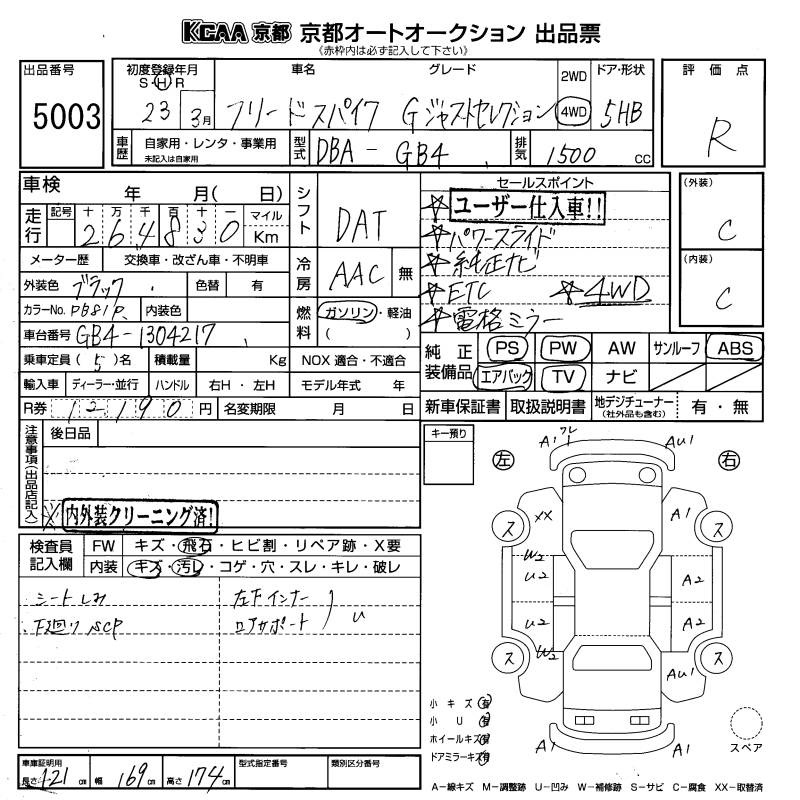 KCAA 京都 京都オートオークション 出品票
《赤枠内は必ず記入して下さい》
出品番号 初度登録年月 車名 グレード 2WD ドア・形状 評価点
S・H・R
5003 23 3月 フリードスパイク Gジャストセレクション 4WD 5HB R
車歴 自家用・レンタ・事業用 型式 DBA-GB4 排気 1500 cc
未記入は自家用
車検 年 月(日) シフト DAT セールスポイント (外装)
☆ユーザー仕入車!!
走行 記号 十 万 千 百 十 一 マイル
264830 Km C
☆パワースライド
メーター歴 交換車・改ざん車・不明車 冷房 AAC 無 ☆純正ナビ (内装)
外装色 ブラック 色替 有 ☆ETC ☆4WD C
カラーNo. PB81P. 内装色 燃料 ガソリン・軽油 ☆電格ミラー
( )
車台番号 GB4-1304217
純正装備品 PS PW AW サンルーフ ABS
乗車定員(5)名 積載量 Kg NOX 適合・不適合
エアバック TV ナビ
輸入車 ディーラー・並行 ハンドル 右H・左H モデル年式 年
R券 12190円 名変期限 月 日 新車保証書 取扱説明書 地デジチューナー(社外品も含む) 有・無
注意事項(出品店記入) 後日品
キー預り
※内外装クリーニング済!
検査員記入欄 FW キズ・飛石・ヒビ割・リペア跡・X要
内装 キズ・汚レ・コゲ・穴・スレ・キレ・破レ
・シートしみ 左下インナー
・下廻りSCP ロアサポート ) U
左 右
A1 フレ AU1
ス XX A1 ス
W2
U2 A2
U2 A2
W2
ス AU1 ス
A1 A1
小キズ 有
小U 有
ホイールキズ 有
ドアミラーキズ 有
スペア
車庫証明用 型式指定番号 類別区分番号
長さ 421cm 幅 169cm 高さ 174cm
A-線キズ M-調整跡 U-凹み W-補修跡 S-サビ C-腐食 XX-取替済